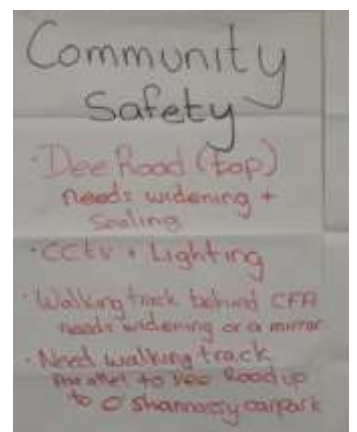 Community
Safety
· Dee Road (top)
needs widening +
Sealing
· CCTV + Lighting
· Walking track behind CFA
needs widening or a mirror
· Need walking track
Parallel to Dee Road up
to O'Shannassy carpark